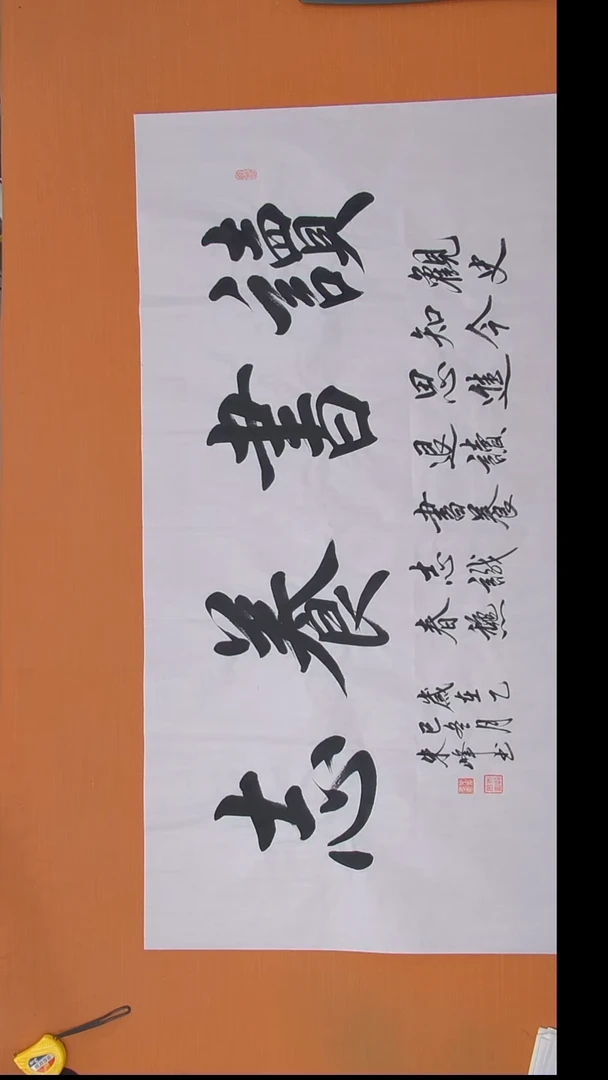 讀書養志
觀史
知今
思進
退讀
書養
志識
春穐
歲在乙
巳冬月
朱峰书